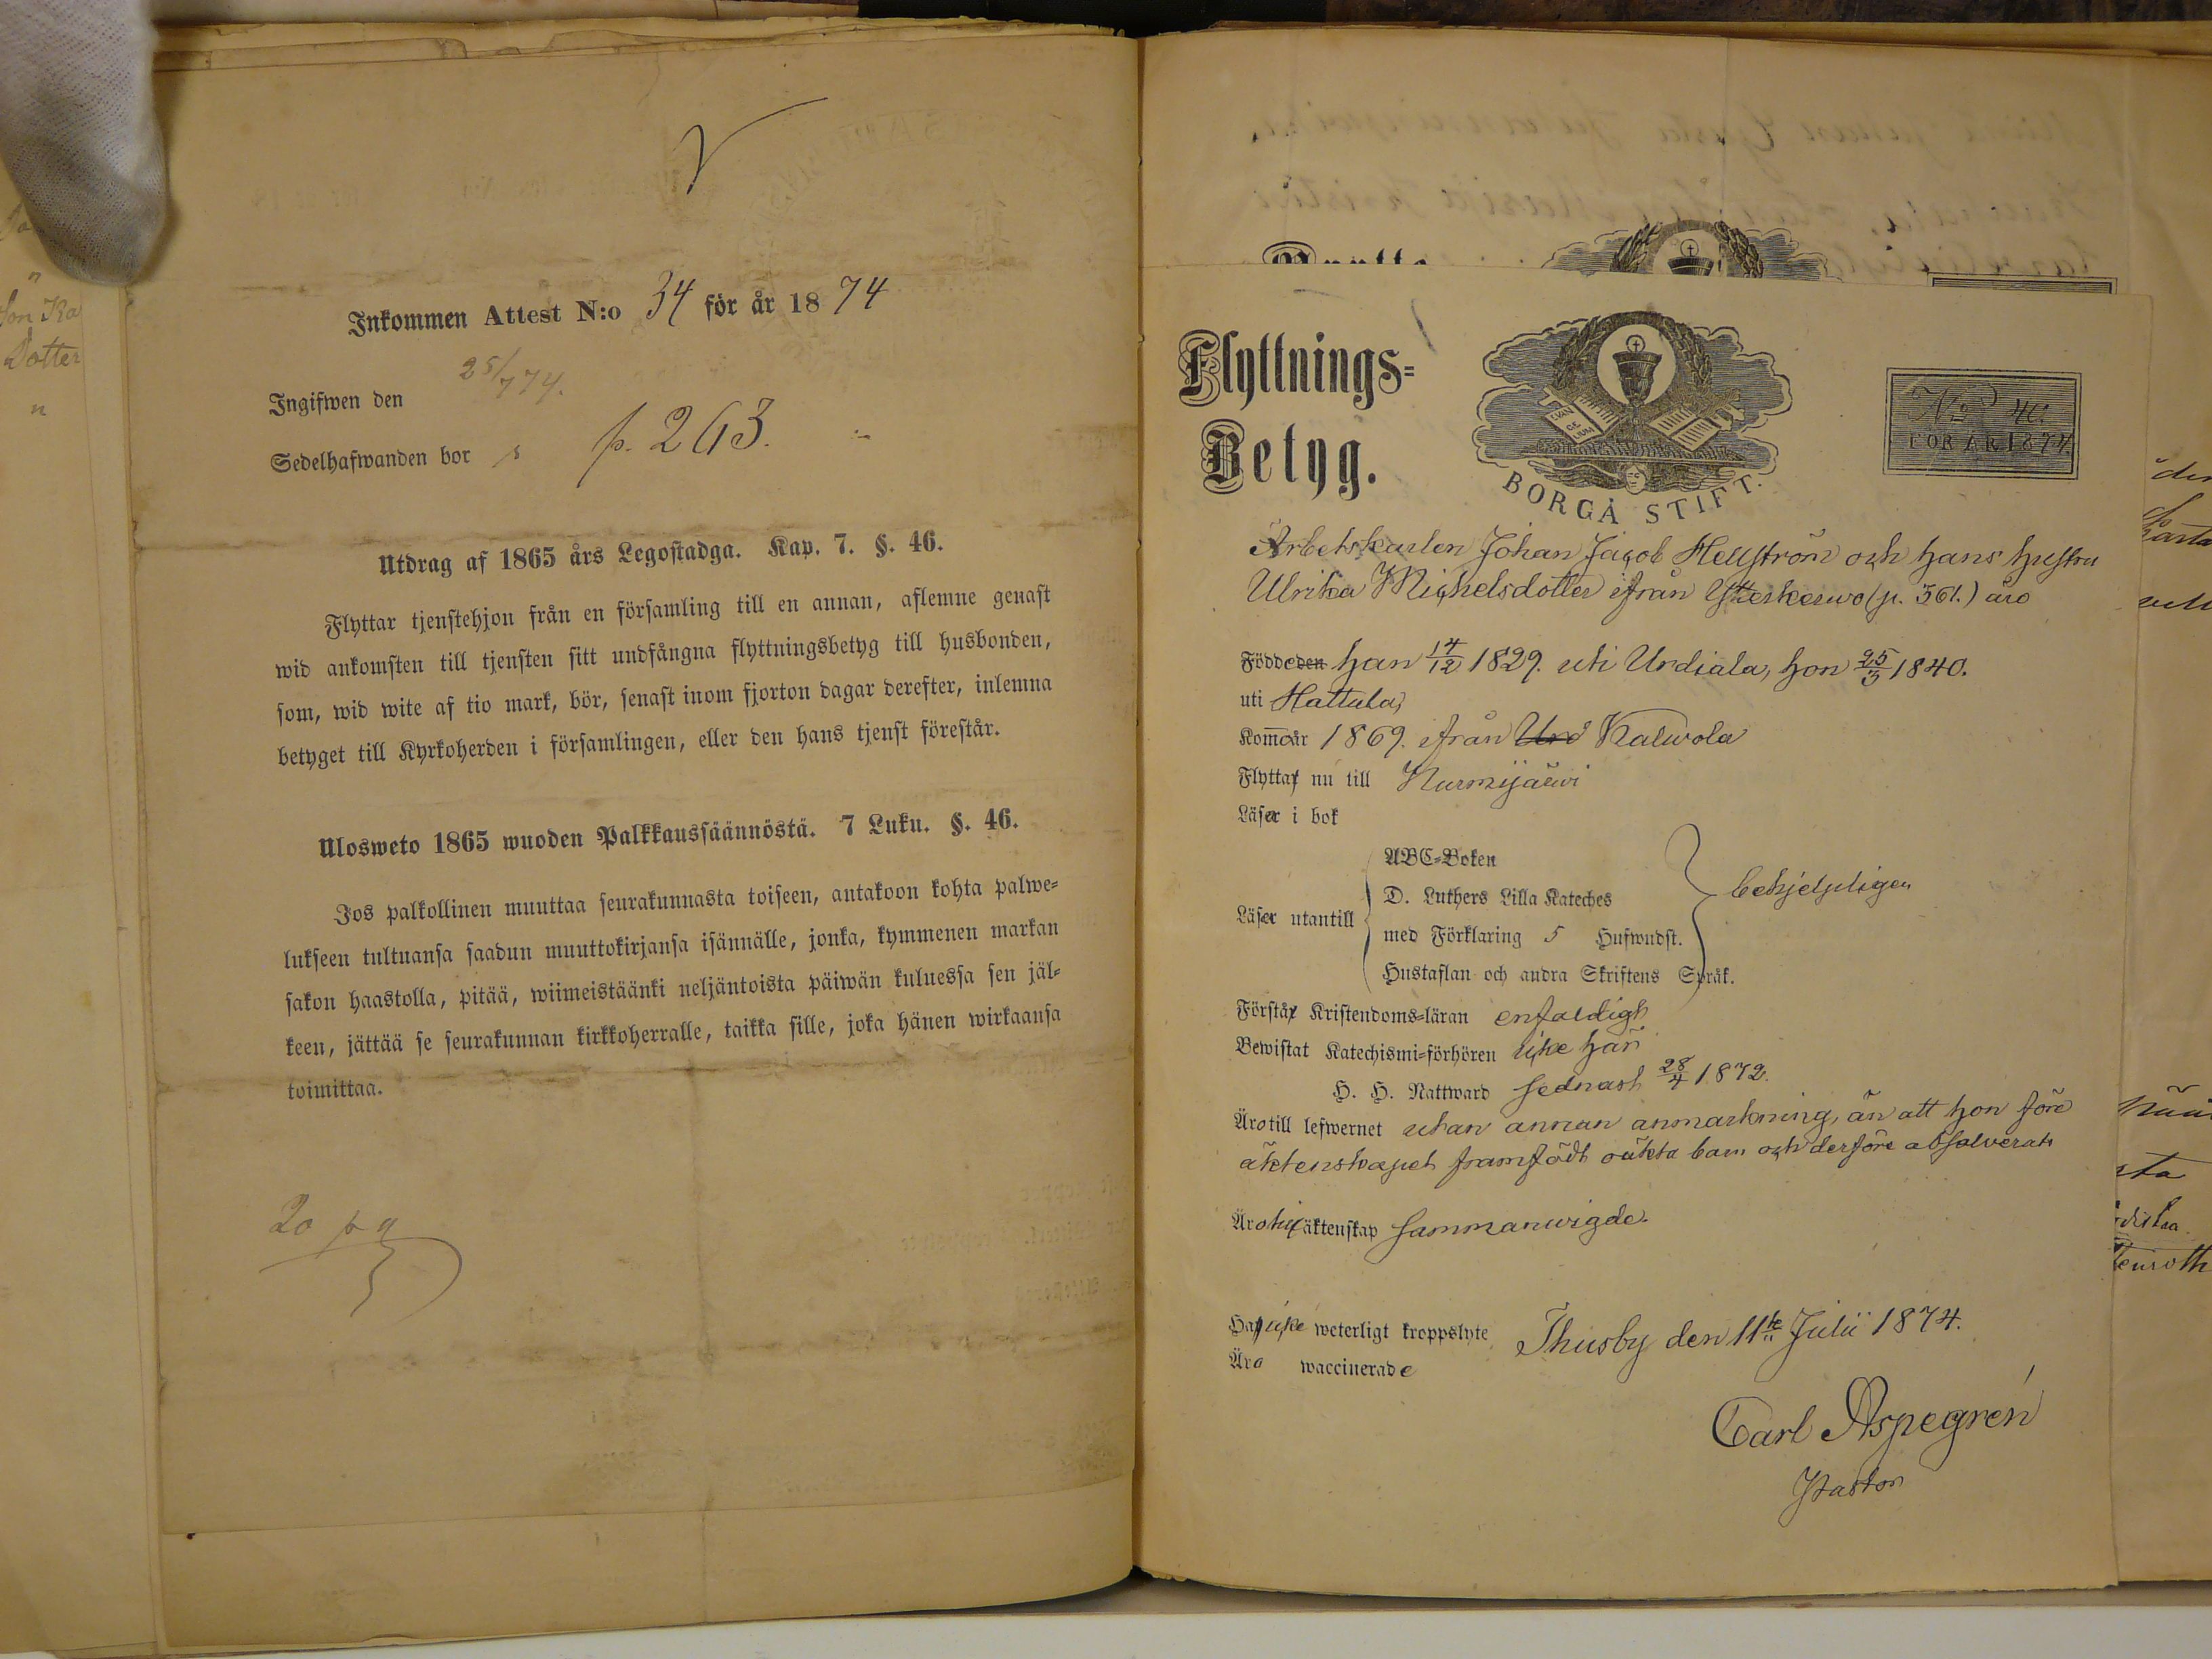 Inkommen Attest N:o 34 för år 1874
Ingifwen den 25/7 74.
Sedelhafwanden bor p. 263.
Utdrag af 1865 års Legostadga. Kap. 7. §. 46.
Flyttar tjenstehjon från en församling till en annan, aflemne genast
wid ankomsten till tjensten sitt undfångna flyttningsbetyg till husbonden,
som, wid wite af tio mark, bör, senast inom fjorton dagar derefter, inlemna
betyget till Kyrkoherden i församlingen, eller den hans tjenst förestår.
Ulosweto 1865 wuoden Palkkaussäännöstä. 7 Luku. §. 46.
Jos palkollinen muuttaa seurakunnasta toiseen, antakoon kohta palwe-
lukseen tultuansa saadun muuttokirjansa isännälle, jonka, kymmenen markan
sakon haastolla, pitää, wiimeistäänki neljäntoista päiwän kuluessa sen jäl-
keen, jättää se seurakunnan kirkkoherralle, taikka sille, joka hänen wirkaansa
toimittaa.
20 p
Son Ka
Dotter
n
Flyttnings-
Betyg.
EVAN GE LIUM
BORGÅ STIFT.
No 40.
FÖR ÅR 1874
Arbetskarlen Johan Jacob Hellström och hans hustru
Ulrika Michelsdotter ifrån Ytterkerwo (p. 361.) äro
Födde den han 14/12 1829. uti Urdiala, hon 25/3 1840.
uti Hattula,
Komo år 1869. ifrån Urd Kalwola
Flytta nu till Nurmijärwi
Läser i bok
ABC-Boken
D. Luthers Lilla Kateches
Läser utantill
med Förklaring 5 Hufwudst.
behjelpligen
Hustaflan och andra Skriftens Språk.
Förstå Kristendoms-läran enfaldigt
Bewistat Katechismi-förhören icke här
H. H. Nattward sednast 28/4 1872.
Äro till lefwernet utan annan anmärkning, än att hon före
äktenskapet framfödt oäkta barn och derföre absolverats
Äro till äktenskap sammanwigde.
Ha icke weterligt kroppslyte
Äro waccinerade
Thusby den 11te Julii 1874.
Carl Aspegrén
Pastor